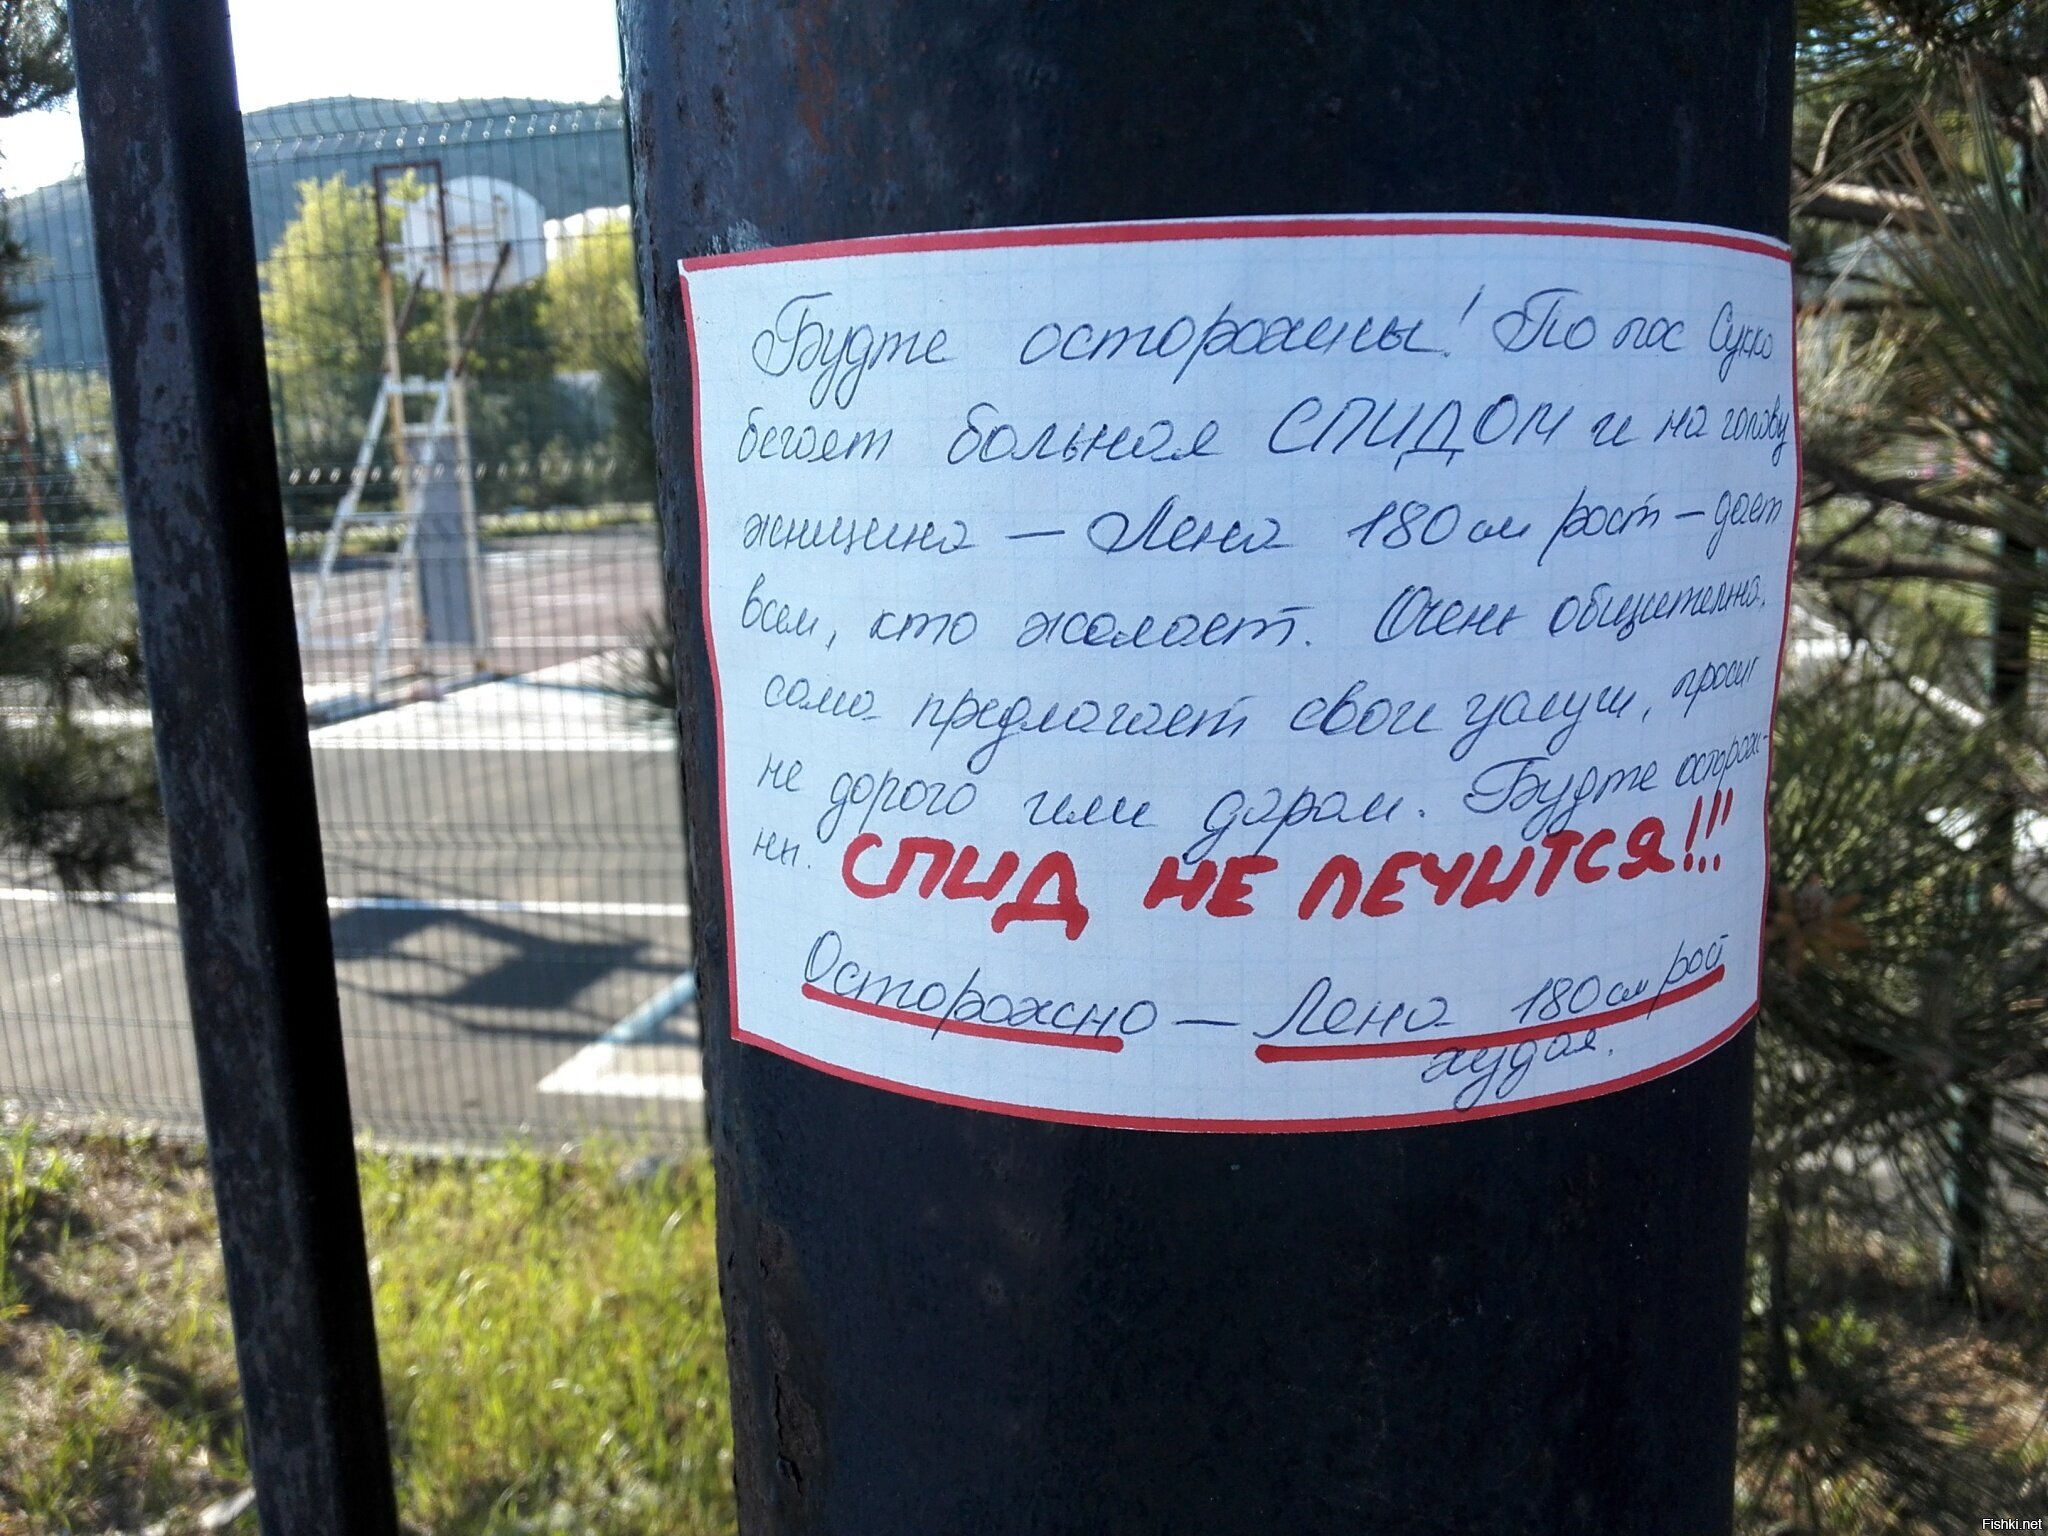 Будте осторожны! По пос Сукко
бегает больная СПИДОМ и на голову
женщина — Лена 180 см рост - дает
всем, кто желает. Очень общительна,
сама предлагает свои услуги, просит
не дорого или даром. Будте осторож-
ны. СПИД НЕ ЛЕЧИТСЯ!!!
Осторожно — Лена 180 см рост
худая.
Fishki.net